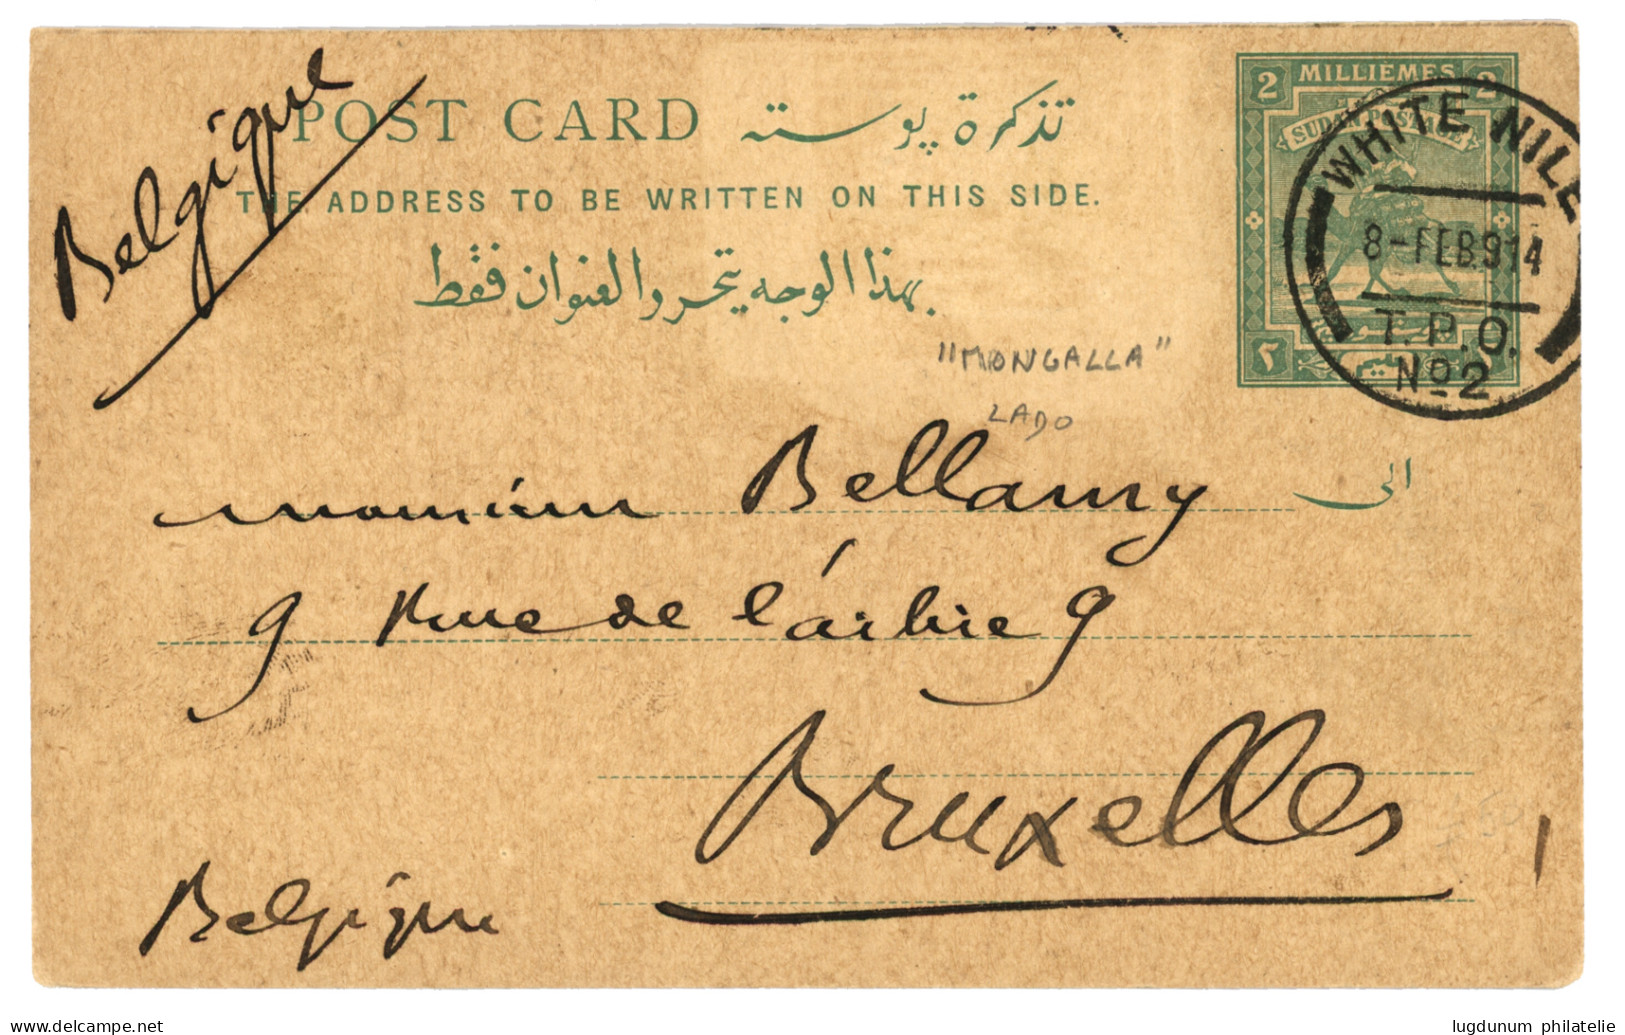 Belgique
POST CARD تذكرة پوسته
THE ADDRESS TO BE WRITTEN ON THIS SIDE.
بهذا الوجه يتحرر العنوان فقط
2 MILLIEMES 2
SUDAN POSTAGE
WHITE NILE
8-FEB.914
T.P.O.
No2
٢
"MONGALLA"
LADO
الى
Bellamy
9 Rue de 9
Bruxelles
Belgique
www.delcampe.net
lugdunum philatelie